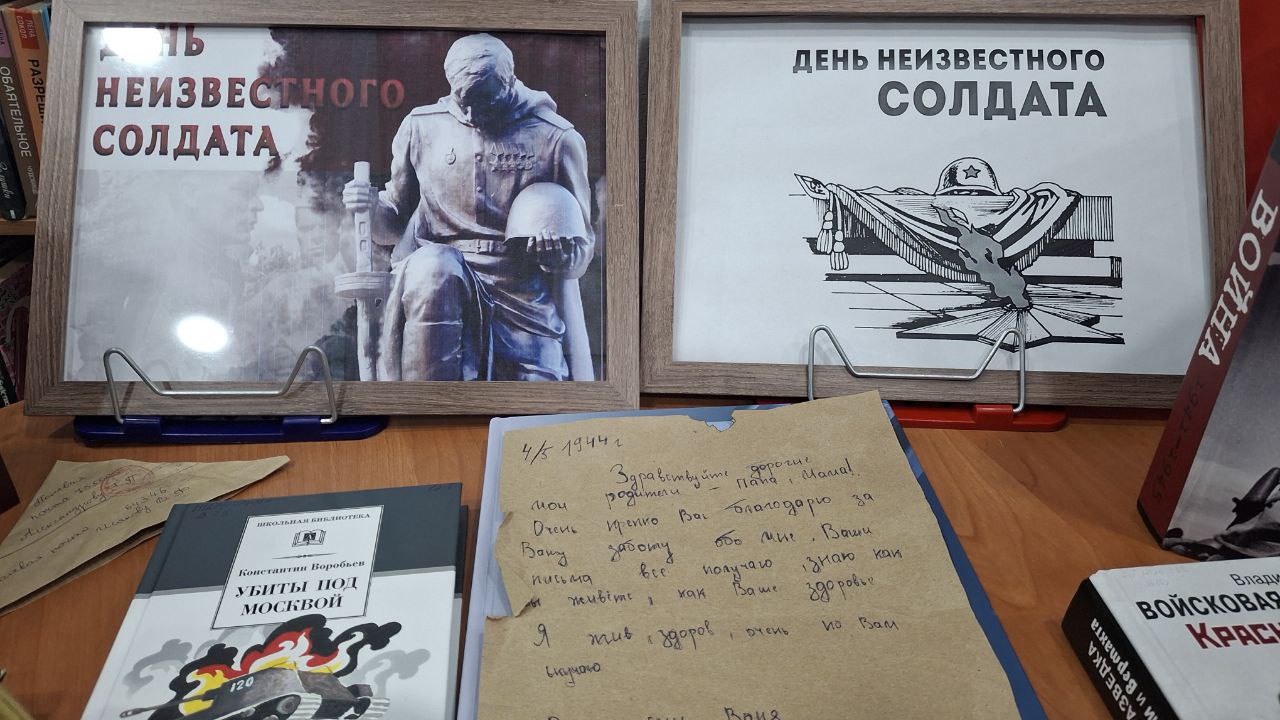 ДЕНЬ
НЕИЗВЕСТНОГО
СОЛДАТА
ДЕНЬ НЕИЗВЕСТНОГО
СОЛДАТА
РАЗРЕШ
ОБАЯТЕЛЬНОЕ
ВОЙНА
1941-1945
4/5 1944 г
Здравствуйте дорогие
мои родители – Папа и Мама!
Очень крепко Вас благодарю за
Вашу заботу обо мне, Ваши
письма все получаю, знаю как
живёте, как Ваше здоровье
Я жив, здоров, очень по Вам
скучаю
Ваня
Полевая
почта
Александрову
полевая почта
ШКОЛЬНАЯ БИБЛИОТЕКА
Константин Воробьев
УБИТЫ ПОД
МОСКВОЙ
120
Влади
ВОЙСКОВАЯ
КРАСН